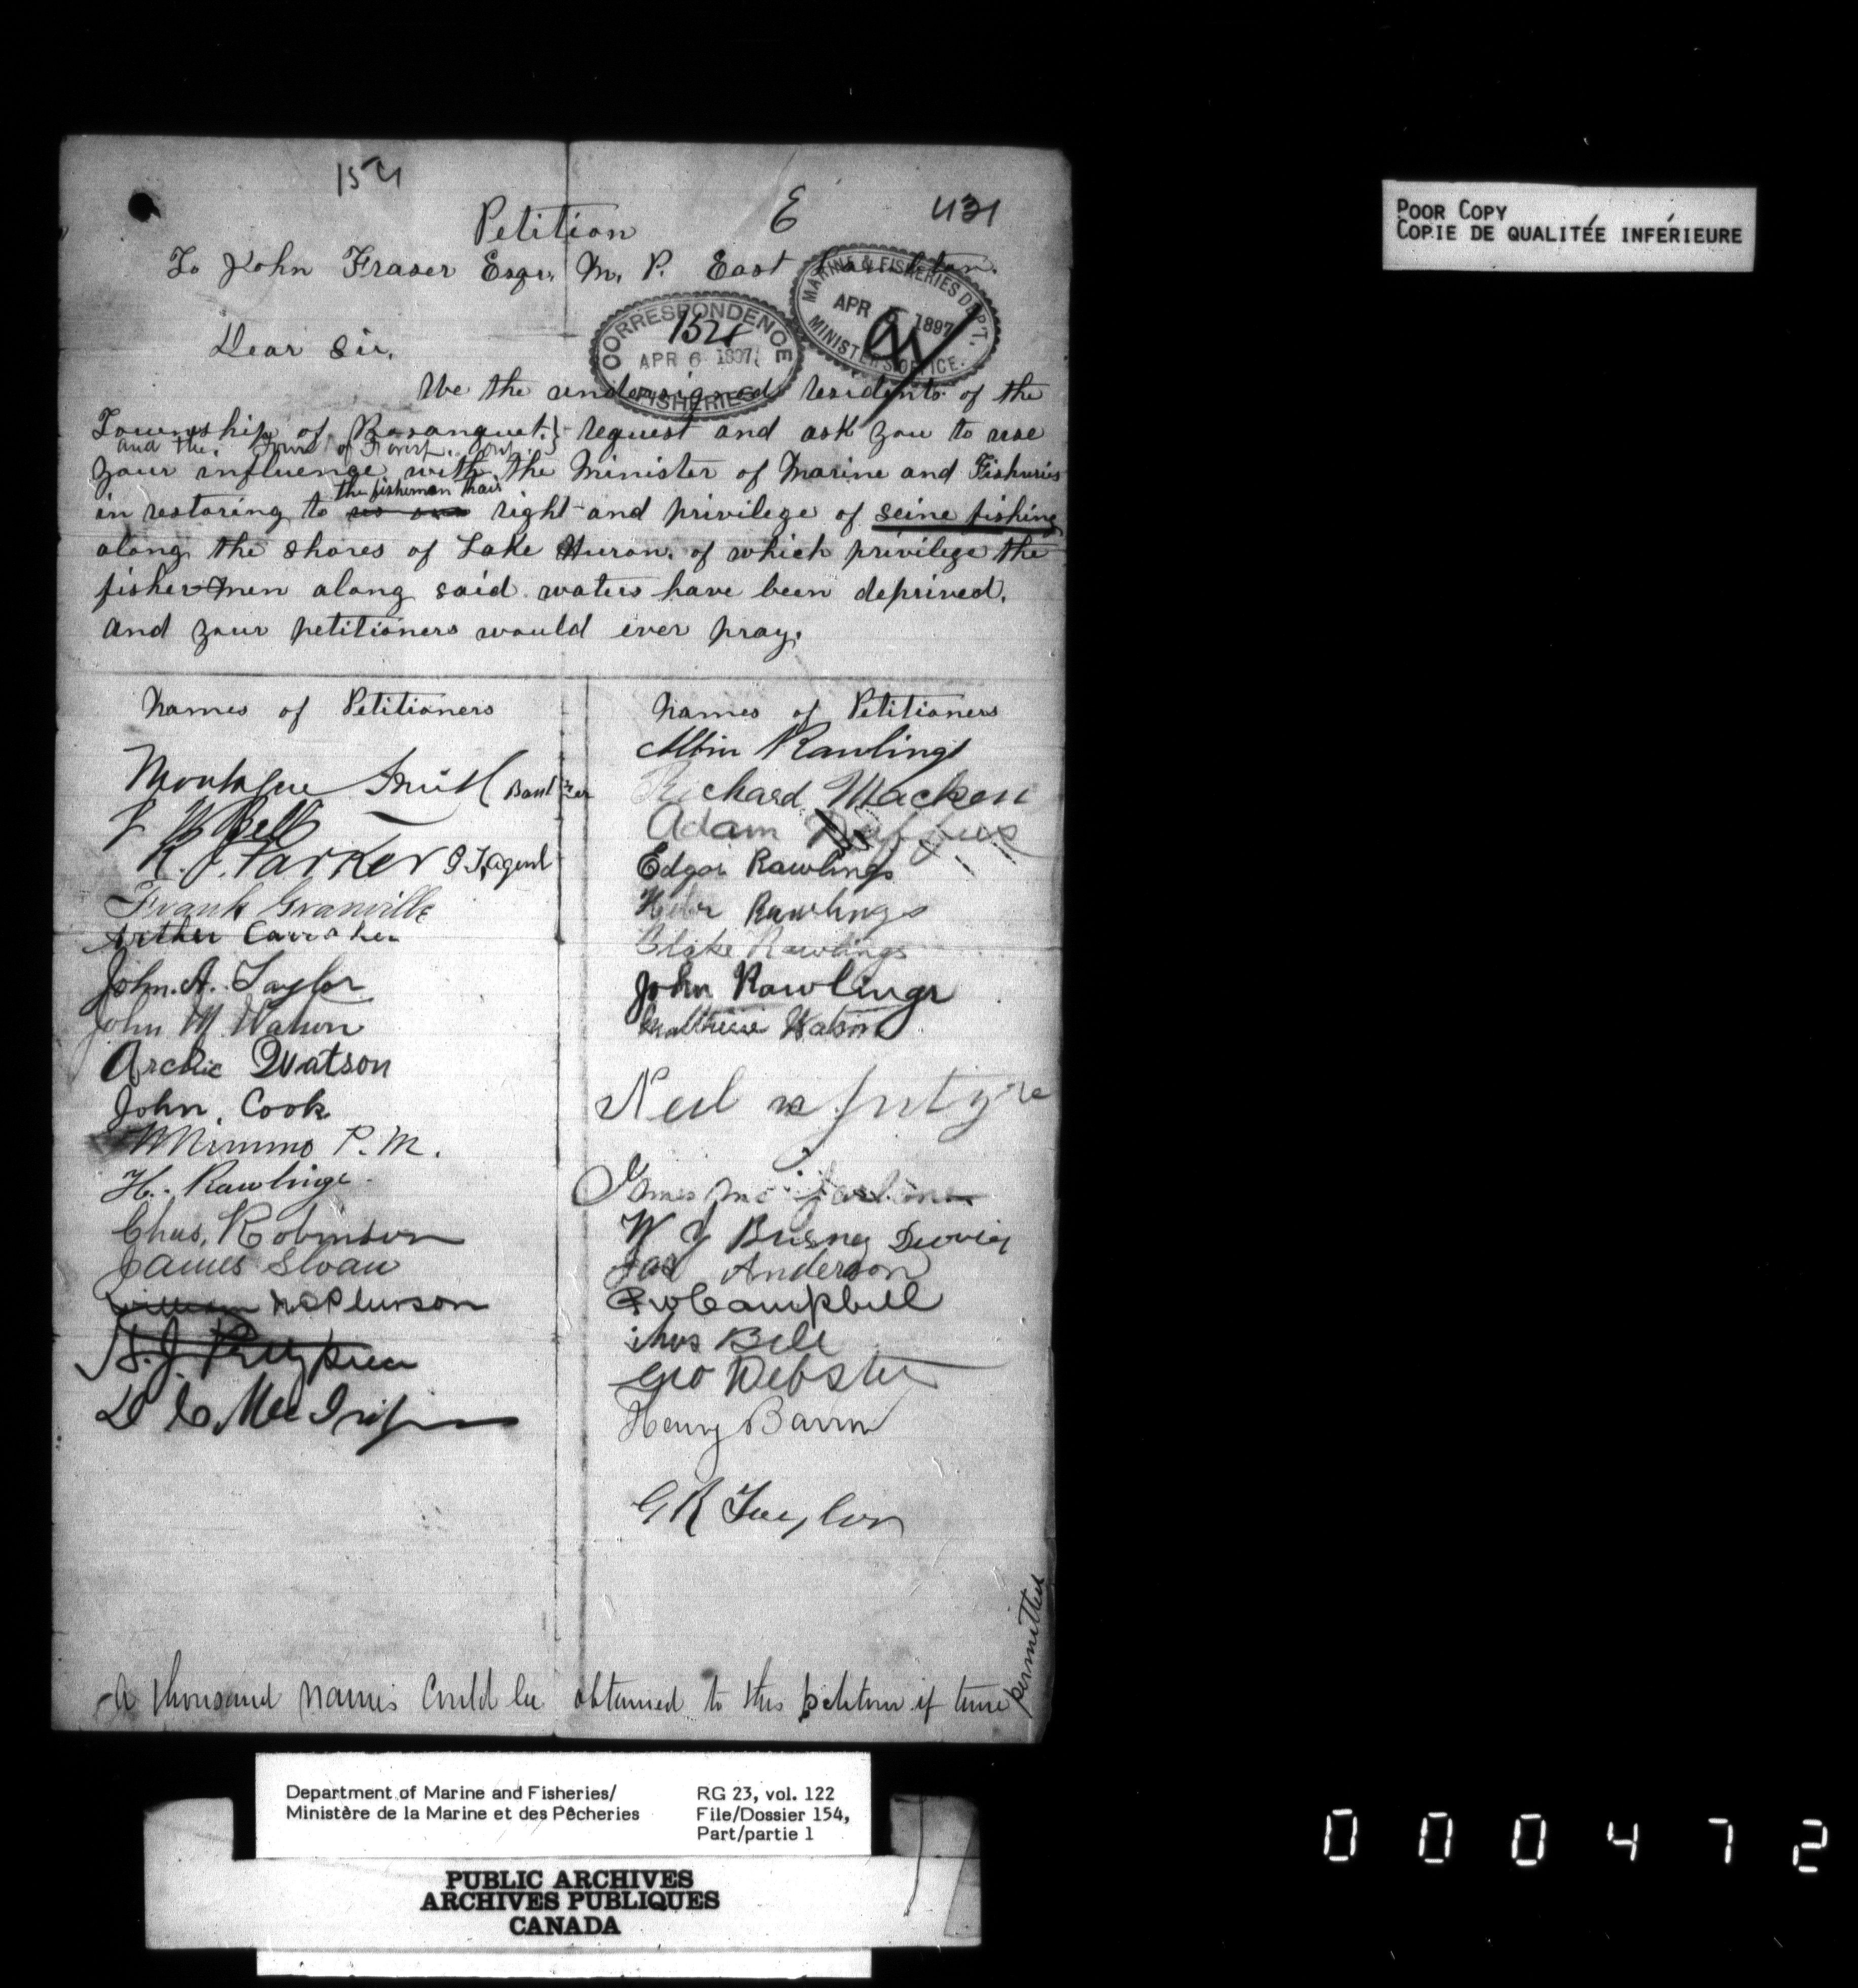 154
Petition E 431
To John Fraser Esqr. M. P. East Lambton.
MARINE & FISHERIES DEP'T.
APR 5 1897
MINISTER'S OFFICE.
CORRESPONDENCE
154
APR 6 1897
FISHERIES
Dear Sir,
We the undersigned residents of the
Township of Bosanquet. request and ask you to use
and the Town of Forest. Ont.
your influence with the Minister of Marine and Fisheries
the fishermen thair
in restoring to right and privilege of seine fishing
along the shores of Lake Huron. of which privilege the
fishermen along said waters have been deprived.
and your petitioners would ever pray.
Names of Petitioners
Montague Smith Banker
Bell
R. J. Parker G.T. agent
Frank Granville
Arthur
John. A. Taylor
John M. Watson
Archie Watson
John. Cook
P. M.
H. Rawlings
Chas. Robinson
James Sloan
William McPherson
H. J. Pettypiece
D C
Names of Petitioners
Albin Rawlings
Richard Macken
Adam Duffus
Edgar Rawlings
Heber Rawlings
Blake Rawlings
John Rawlings
Watson
Neil
James Mc
W J
Jas Anderson
Campbell
Thos Bell
Geo Webster
Henry
G R Taylor
A thousand names could be obtained to this petition if time permitted
POOR COPY
COPIE DE QUALITÉE INFÉRIEURE
Department of Marine and Fisheries/
Ministère de la Marine et des Pêcheries
RG 23, vol. 122
File/Dossier 154,
Part/partie 1
PUBLIC ARCHIVES
ARCHIVES PUBLIQUES
CANADA
000472